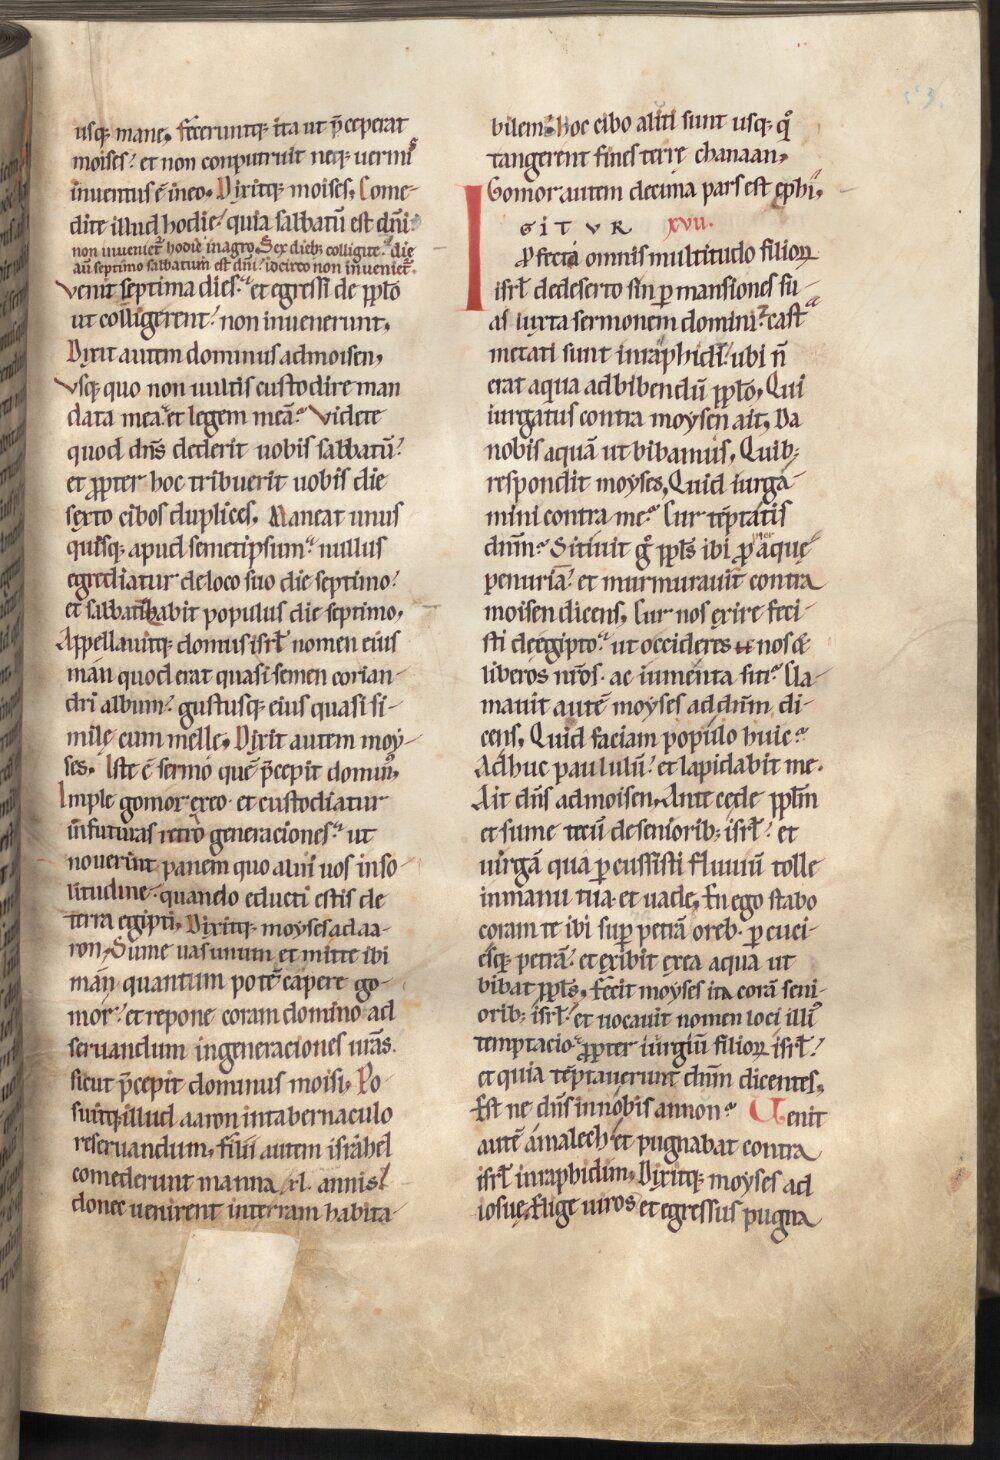 usq; mane. feceruntq; ita ut p̄ceperat
moises. et non conputruit neq; uermis
inuentus ē in eo. Dixitq; moises. Come-
dite illud hodie. quia sabbatū est dn̄i.
non inueniet̄ hodie in agro. Sex dieb; colligite. die
aū septimo sabbatum est dn̄i. idcirco non inueniet̄.
Venit septima dies. et egressi de pplo
ut colligerent. non inuenerunt.
Dixit autem dominus ad moisen.
Vsq; quo non uultis custodire man
data mea. et legem meā. Videte
quod dn̄s dederit uobis sabbatū.
et ppter hoc tribuerit uobis die
sexto cibos duplices. Maneat unus
quisq; apud semetipsum. nullus
egrediatur de loco suo die septimo.
et sabbatizabit populus die septimo.
Appellauitq; domus isrl̄ nomen eius
man quod erat quasi semen corian-
dri album. gustusq; eius quasi si-
milę cum melle. Dixit autem moy-
ses. Iste ē sermo quē p̄cepit dominus.
Imple gomor ex eo. et custodiatur
in futuras retro generaciones. ut
nouerint panem quo alui uos in so-
litudine. quando educti estis de
terra egipti. Dixitq; moyses ad aa-
ron. Sume uas unum et mitte ibi
man quantum potē capere go-
mor. et repone coram domino ad
seruandum in generaciones ur̄as.
sicut p̄cepit dominus moisi. Po-
suitq; illud aaron in tabernaculo
reseruandum. filii autem israhel
comederunt manna .xl. annis.
donec uenirent in terram habita-
bilem. hoc cibo aliti sunt usq; qͦ
tangerent fines terrę chanaan.
Gomor autem decima pars est ephi.
IGITVR xvii.
Profecta omnis multitudo filioꝝ
isrl̄ de deserto sin p mansiones su-
as iuxta sermonem domini. cast̄
metati sunt in raphidi. ubi n̄
erat aqua ad bibendū pplo. Qui
iurgatus contra moysen ait. Da
nobis aquā ut bibamus. Quib;
respondit moyses. Quid iurga-
mini contra me. Cur tēptatis
dn̄m. Sitiuit gͦ ppl̄s ibi pro aquę
penuria. et murmurauit contra
moisen dicens. Cur nos exire feci-
sti de egipto. ut occideres nos &
liberos nr̄os. ac iumenta siti. Cla-
mauit autē moyses ad dn̄m di-
cens. Quid faciam populo huic.
Adhuc paululū. et lapidabit me.
Ait dn̄s ad moisen. Antecede pplm̄
et sume tecū de seniorib; isrl̄. et
uirgā qua pcussisti fluuiū tolle
in manu tua. et uade. En ego stabo
coram te ibi sup petrā oreb. pcuci-
esq; petrā. et exibit ex ea aqua ut
bibat ppl̄s. fecit moyses ita corā seni-
orib; isrl̄. et uocauit nomen loci illius
temptacio. ppter iurgiū filioꝝ isrl̄.
et quia tēptauerunt dn̄m dicentes.
Est ne dn̄s in nobis an non. Uenit
autē amalech et pugnabat contra
isrl̄ in raphidim. Dixitq; moyses ad
iosue. Elige uiros et egressus pugna